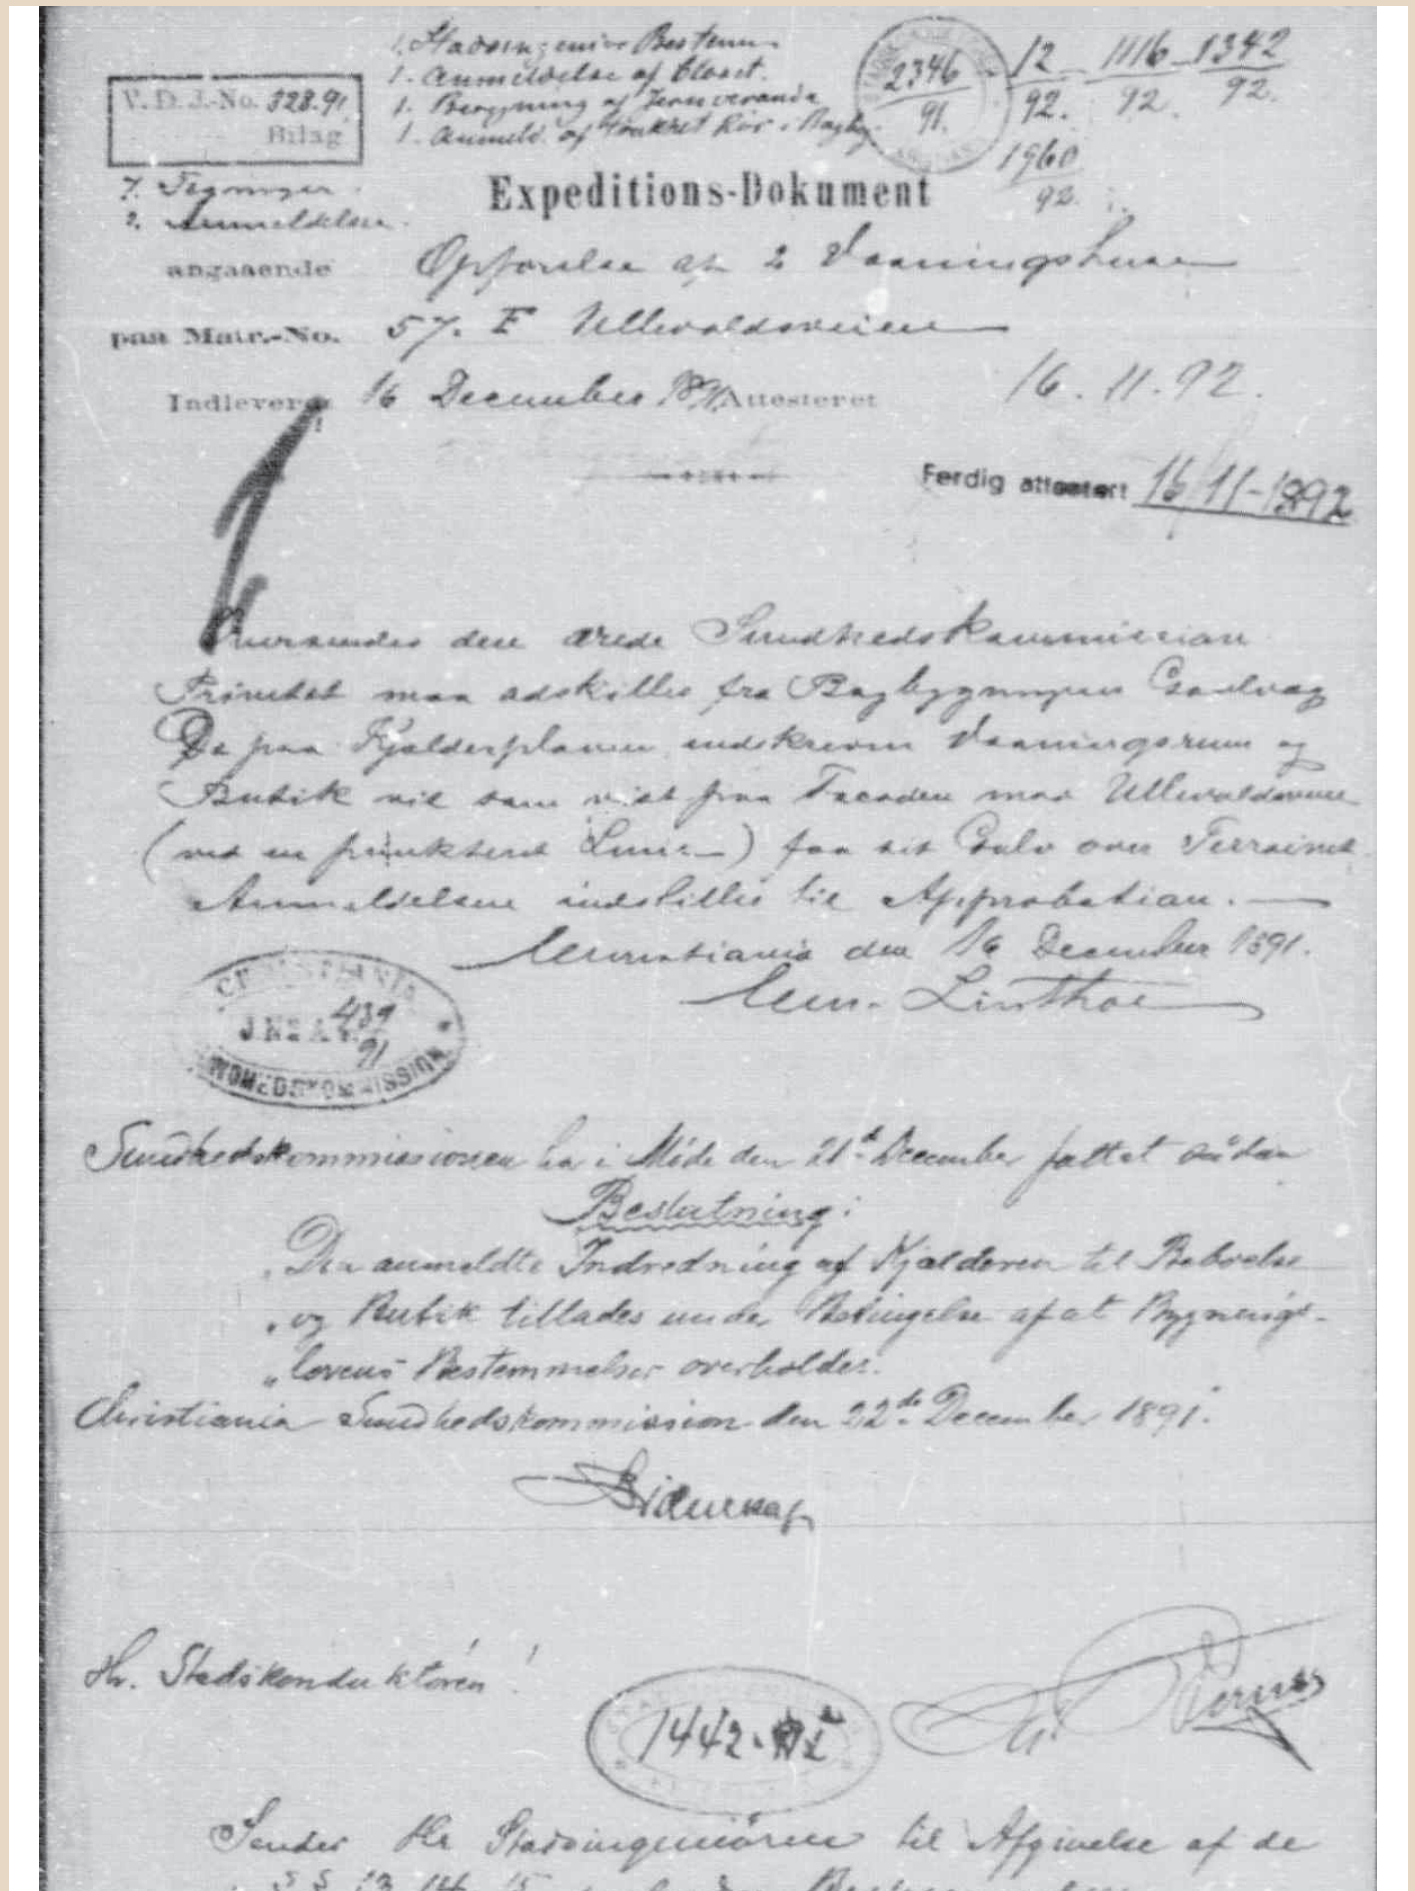 1. Stadsingeniør Bestem.
1. Anmeldelse af Closet.
1. Beregning af Jernveranda
1. Anmeld. af trukket Rør i Bagbg.
2346
91.
12 1116 1342
92. 92. 92.
1960
92.
V. D. J.-No. 328.91.
Bilag
7. Tegninger.
2. Anmeldelser.
Expeditions-Dokument
angaaende Opførelse af 2 Vaaningshuse
paa Matr.-No. 57. F Ullevoldsveien
Indleveret 16 December 1891 Attesteret 16.11.92.
Ferdig attestert 16/11-1892
Oversendes den ærede Sundhedskommission
Privetet maa adskilles fra Bagbygningens Gavlvæg
De paa Kjælderplanen indskrevne Vaaningsrum og
Butik vil som vist paa Facaden mod Ullevoldsveien
(ved en punkteret Linie) faa sit Gulv over Terrainet
Anmeldelsen indstilles til Approbation.
Christiania den 16 December 1891.
Chr. Linthoe
CHRISTIANIA
J. No A. 439
91
SUNDHEDSKOMMISSION
Sundhedskommissionen har i Møde den 21de December fattet sådan
Beslutning:
„Den anmeldte Indredning af Kjælderen til Beboelse
„og Butik tillades under Betingelse af at Bygnings-
„lovens Bestemmelser overholdes.
Christiania Sundhedskommission den 22de December 1891.
Hr. Stadskonduktøren!
1442
Sendes Hr Stadsingeniøren til Afgivelse af de
§§ 13, 14, 15